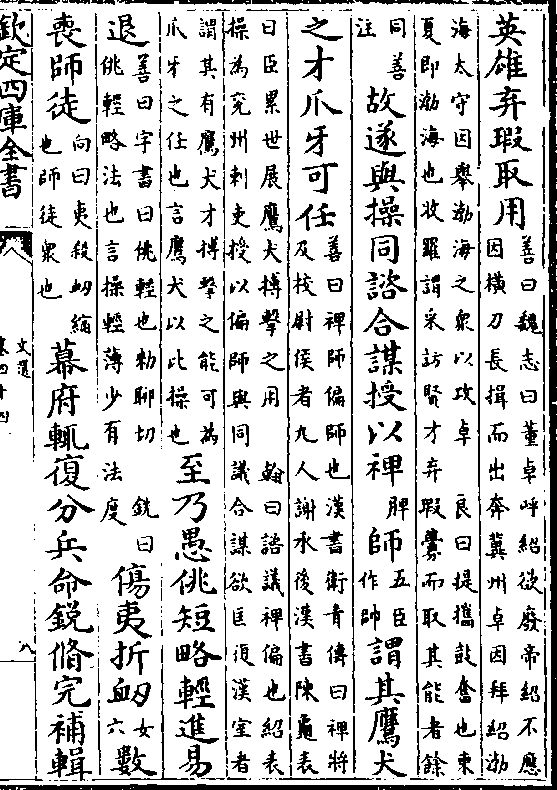 英雄弃瑕取用善曰魏志曰董卓呼紹欲廢帝紹不應因橫刀長揖而出奔冀州卓因拜紹渤
海太守因舉渤海之衆以攻卓 良曰提攜鼓奮也東夏即渤海也收羅謂采訪賢才弃瑕釁而取其能者餘
同善注故遂與操同諮合謀授以裨脾師五臣作帥謂其鷹犬
之才爪牙可任善曰裨師偏師也漢書衛青傳曰裨將及校尉侯者九人謝承後漢書陳龜表
曰臣累世展鷹犬搏擊之用 翰曰諮議裨偏也紹表操為兖州刺史授以偏師與同議合謀欲匡復漢室者
謂其有鷹犬才搏擊之能可為爪牙之任也言鷹犬以此操也至乃愚佻短略輕進易
退善曰字書曰佻輕也勑聊切 銑曰佻輕略法也言操輕薄少有法度傷夷折衂女六數
喪師徒向曰夷殺衂縮也師徒衆也幕府輒復分兵命銳脩完補輯
欽定四庫全書
文選
卷四十四
八